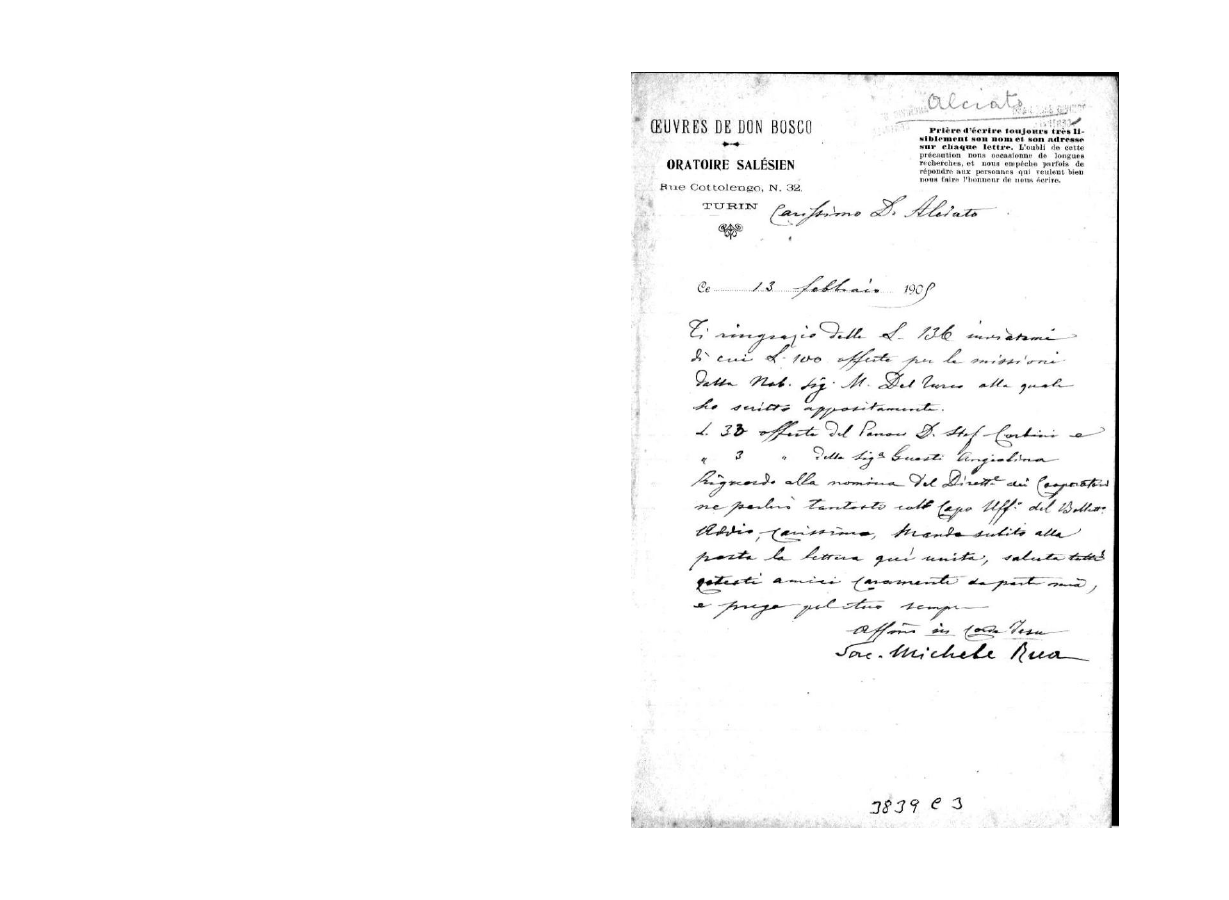 Alciato
ŒUVRES DE DON BOSCO
ORATOIRE SALÉSIEN
Rue Cottolengo, N. 32.
TURIN
Prière d'écrire toujours très li-
siblement son nom et son adresse
sur chaque lettre. L'oubli de cette
précaution nous occasionne de longues
recherches, et nous empêche parfois de
répondre aux personnes qui veulent bien
nous faire l'honneur de nous écrire.
Carissimo D. Alciato
Ce 13 febbraio 1905
Ti ringrazio delle L. 136 inviatemi
di cui L. 100 offerte per le missioni
dalla Nob. Sig. M. Del Turco alla quale
ho scritto appositamente.
L. 33 offerte del D. Stef. Corbini e
" 3 " della Sigª Guasti Angiolina
Riguardo alla nomina del Dirett.e dei Cooperatori
ne parlerò tantosto col Capo Uff.o del
Addio, carissimo, Manda subito alla
posta la lettera qui unita, saluta tutti
cotesti amici caramente da parte mia,
e prega pel tuo sempre
Affmo in Corde Jesu
Sac. Michele Rua
3839 C 3